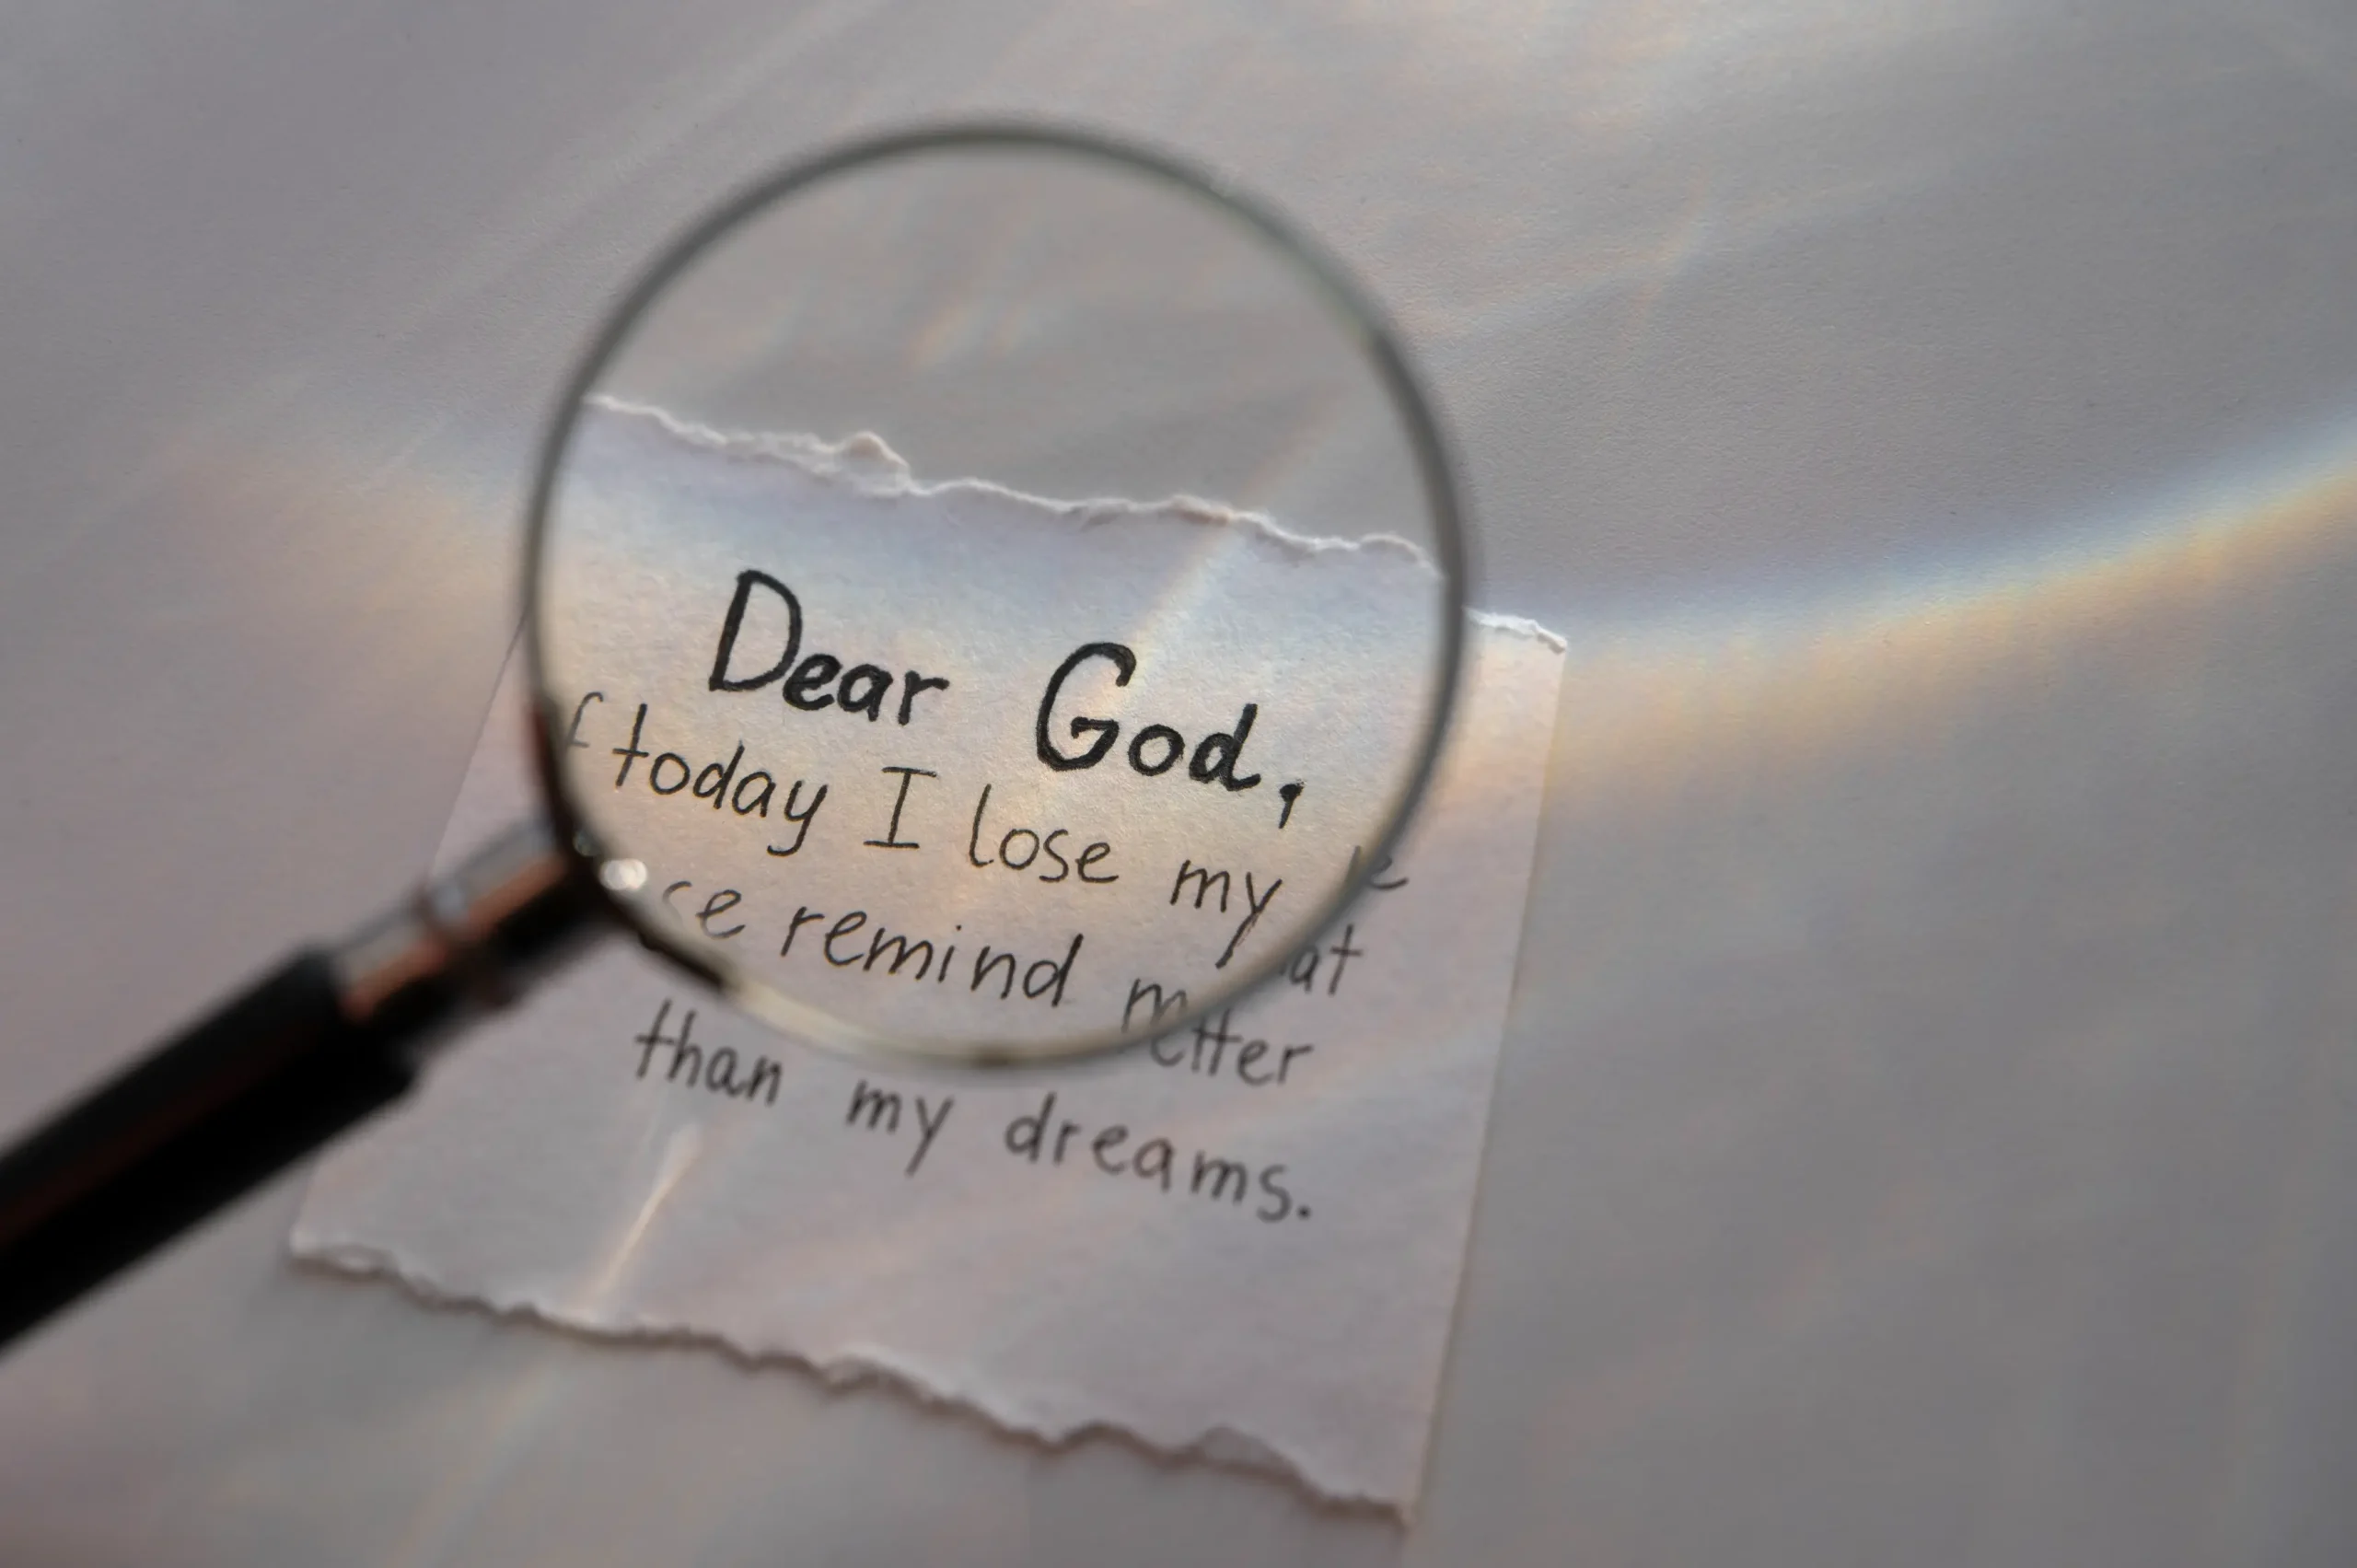 Dear God,
f today I lose my
se remind m
than my dreams.